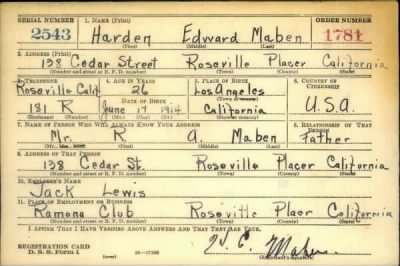 SERIAL NUMBER 1. NAME (Print) ORDER NUMBER
2543 Harden Edward Maben 1781
(First) (Middle) (Last)
2. ADDRESS (Print)
138 Cedar Street Roseville Placer California
(Number and street or R. F. D. number) (Town) (County) (State)
3. TELEPHONE 4. AGE IN YEARS 5. PLACE OF BIRTH 6. COUNTRY OF CITIZENSHIP
Roseville Calif 26 Los Angeles
(Town or county)
DATE OF BIRTH
181 R June 17 1914 California U.S.A.
(Exchange) (Number) (Mo.) (Day) (Yr.) (State or country)
7. NAME OF PERSON WHO WILL ALWAYS KNOW YOUR ADDRESS 8. RELATIONSHIP OF THAT PERSON
Mr. R A. Maben Father
(First) (Middle) (Last)
9. ADDRESS OF THAT PERSON
138 Cedar St. Roseville Placer California
(Number and street or R. F. D. number) (Town) (County) (State)
10. EMPLOYER'S NAME
Jack Lewis
11. PLACE OF EMPLOYMENT OR BUSINESS
Ramona Club Roseville Placer California
(Number and street or R. F. D. number) (Town) (County) (State)
I AFFIRM THAT I HAVE VERIFIED ABOVE ANSWERS AND THAT THEY ARE TRUE.
REGISTRATION CARD
D. S. S. Form 1
Maben